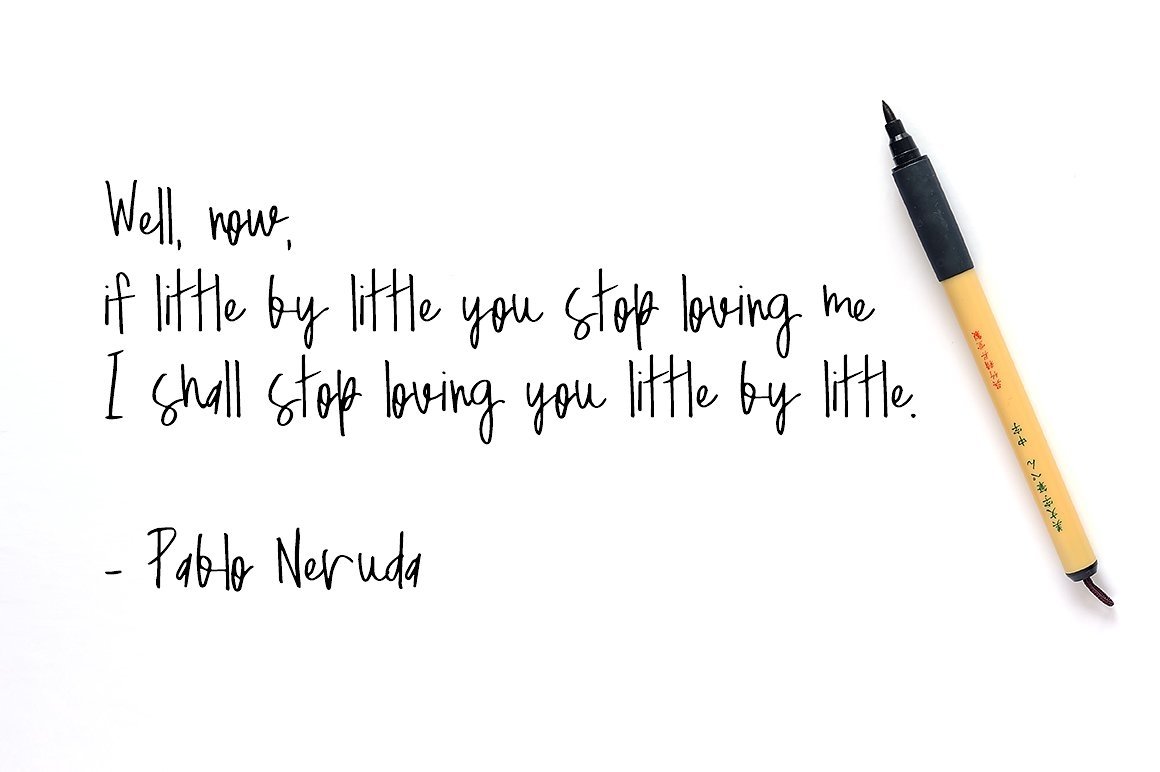 Well, now,
if little by little you stop loving me
I shall stop loving you little by little.
- Pablo Neruda
呉竹精昇堂製
中字